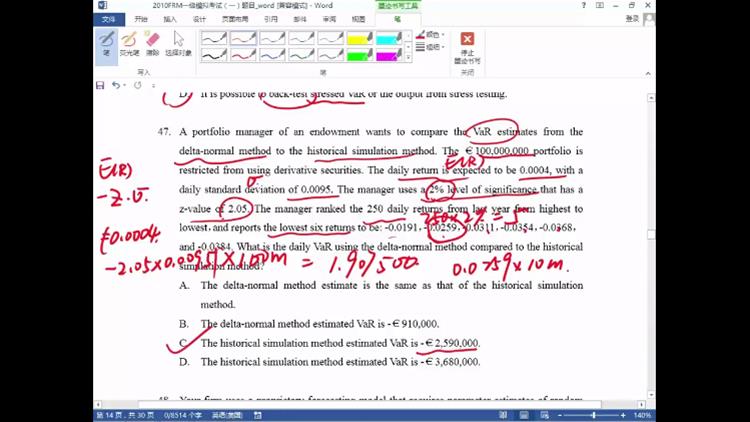 2010FRM一级模拟考试（一）题目_word [兼容模式] - Word
墨迹书写工具
文件 开始 插入 设计 页面布局 引用 邮件 审阅 视图 笔
登录
笔 荧光笔 橡皮擦 选择对象
颜色
粗细
停止
墨迹书写
写入 笔 关闭
D. It is possible to back-test stressed VaR or the output from stress testing.
47. A portfolio manager of an endowment wants to compare the VaR estimates from the
delta-normal method to the historical simulation method. The €100,000,000 portfolio is
E(R)
restricted from using derivative securities. The daily return is expected to be 0.0004, with a
E(R)
σ
daily standard deviation of 0.0095. The manager uses a 2% level of significance that has a
-Z.σ
z-value of 2.05. The manager ranked the 250 daily returns from last year from highest to
250×2%=5
lowest, and reports the lowest six returns to be: -0.0191, -0.0259, -0.0311, -0.0354, -0.0368,
0.0004
and -0.0384. What is the daily VaR using the delta-normal method compared to the historical
simulation method?
-2.05×0.0095 ×100m = 1.907500
0.0259×10m.
A. The delta-normal method estimate is the same as that of the historical simulation
method.
B. The delta-normal method estimated VaR is -€910,000.
C. The historical simulation method estimated VaR is -€2,590,000.
D. The historical simulation method estimated VaR is -€3,680,000.
48. Your firm uses a proprietary forecasting model that requires parameter estimates of random
第 14 页，共 30 页 0/8514 个字 英语(美国) 140%